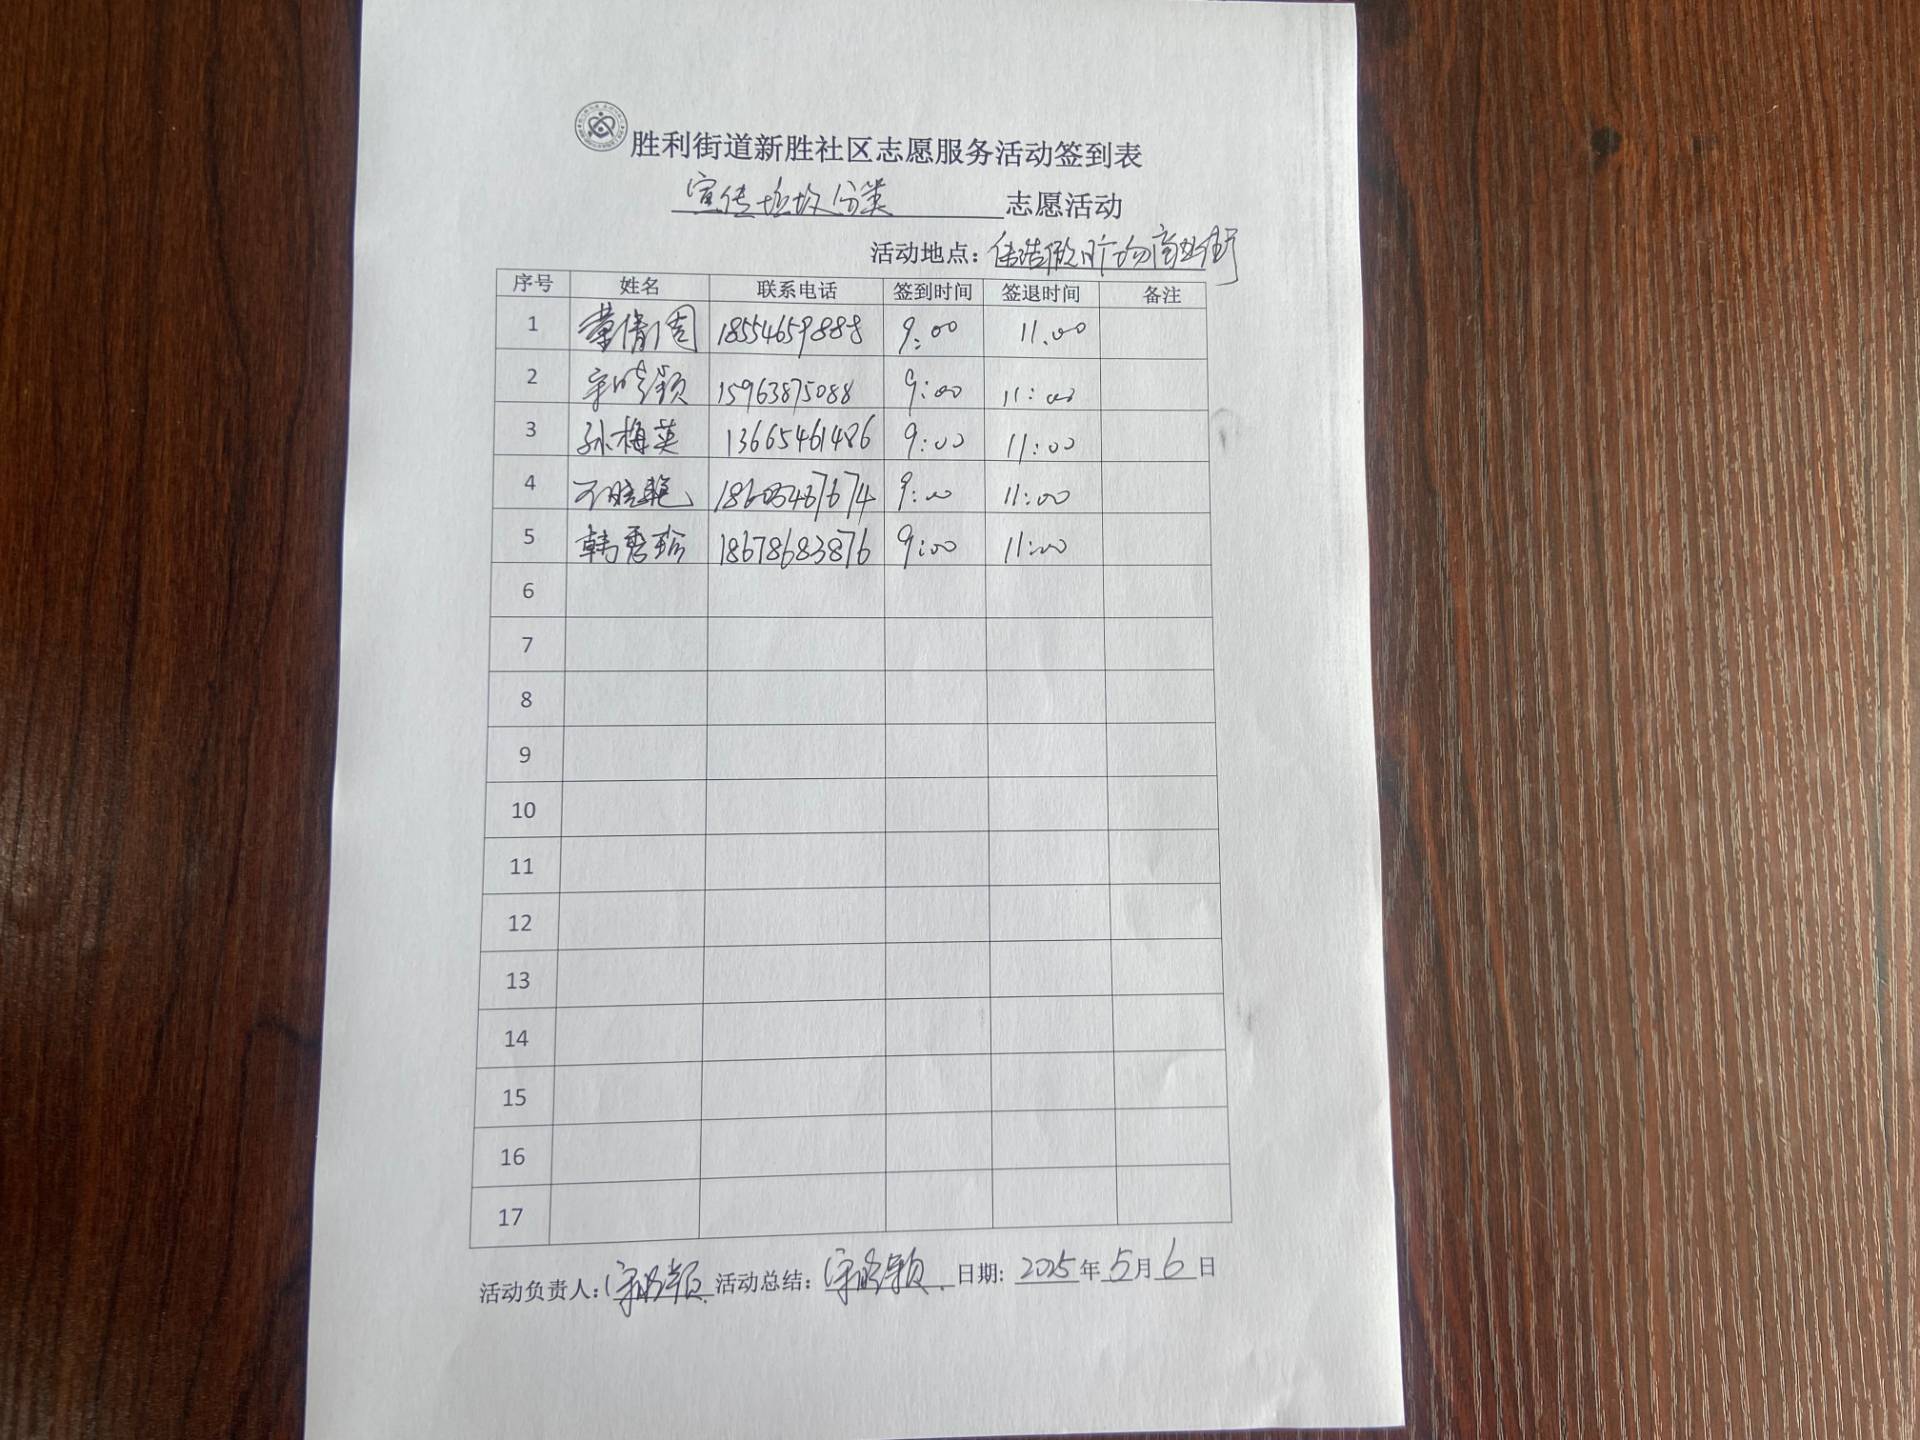 胜利街道新胜社区志愿服务活动签到表
宣传垃圾分类 志愿活动
活动地点: 广场商业街
序号 姓名 联系电话 签到时间 签退时间 备注
1 18554659888 9:00 11.00
2 宋晓颖 15963875088 9:00 11:00
3 孙梅英 13665461486 9:00 11:00
4 9:00 11:00
5 韩秀珍 18678683876 9:00 11:00
6
7
8
9
10
11
12
13
14
15
16
17
活动负责人: 宋晓颖 活动总结: 宋晓颖 日期: 2025年5月6日